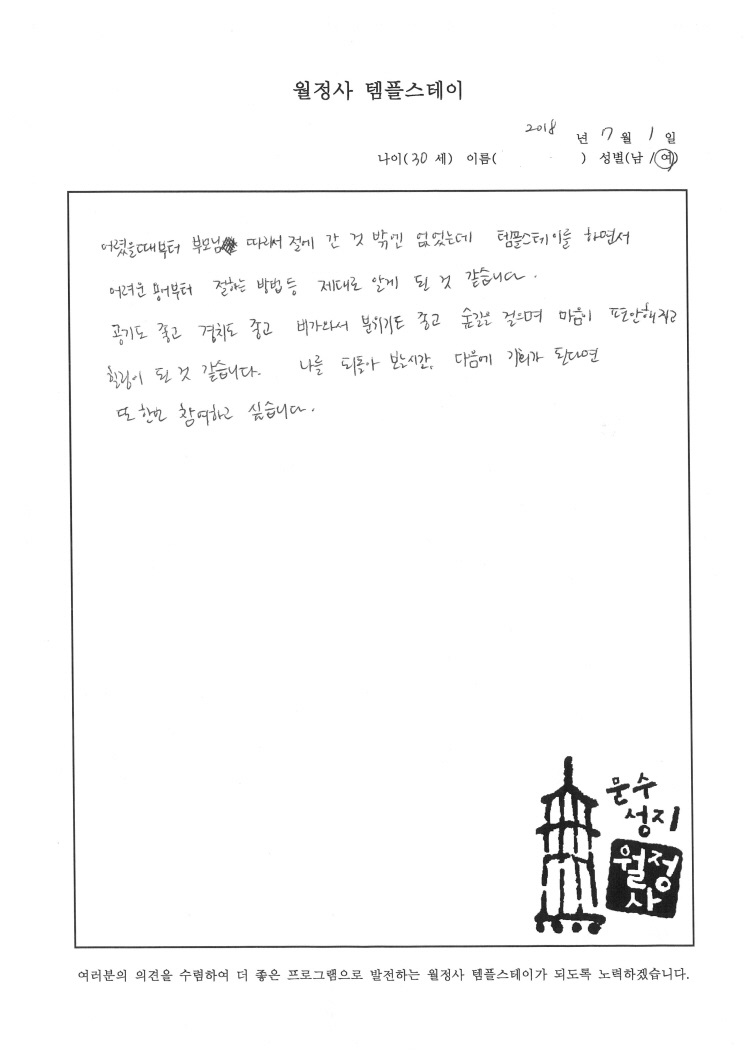 월정사 템플스테이
2018 년 7 월 1 일
나이(30 세) 이름( ) 성별(남/여)
어렸을때부터 부모님 따라서 절에 간 것 밖엔 없었는데 템플스테이를 하면서
어려운 용어부터 절하는 방법등 제대로 알게 된 것 같습니다.
공기도 좋고 경치도 좋고 비가와서 분위기도 좋고 숲길을 걸으며 마음이 편안해지고
힐링이 된 것 같습니다. 나를 되돌아 보는시간, 다음에 기회가 된다면
또 한번 참여하고 싶습니다.
문수
성지
월정
사
여러분의 의견을 수렴하여 더 좋은 프로그램으로 발전하는 월정사 템플스테이가 되도록 노력하겠습니다.